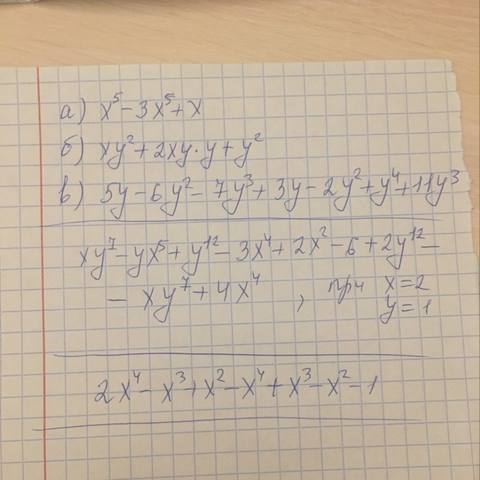 а) x⁵ - 3x⁵ + x
б) xy² + 2xy · y + y²
в) 5y - 6y² - 7y³ + 3y - 2y² + y⁴ + 11y³
xy⁷ - yx⁵ + y¹² - 3x⁴ + 2x² - 6 + 2y¹² -
- xy⁷ + 4x⁴ , при x = 2
y = 1
2x⁴ - x³ + x² - x⁴ + x³ - x² - 1